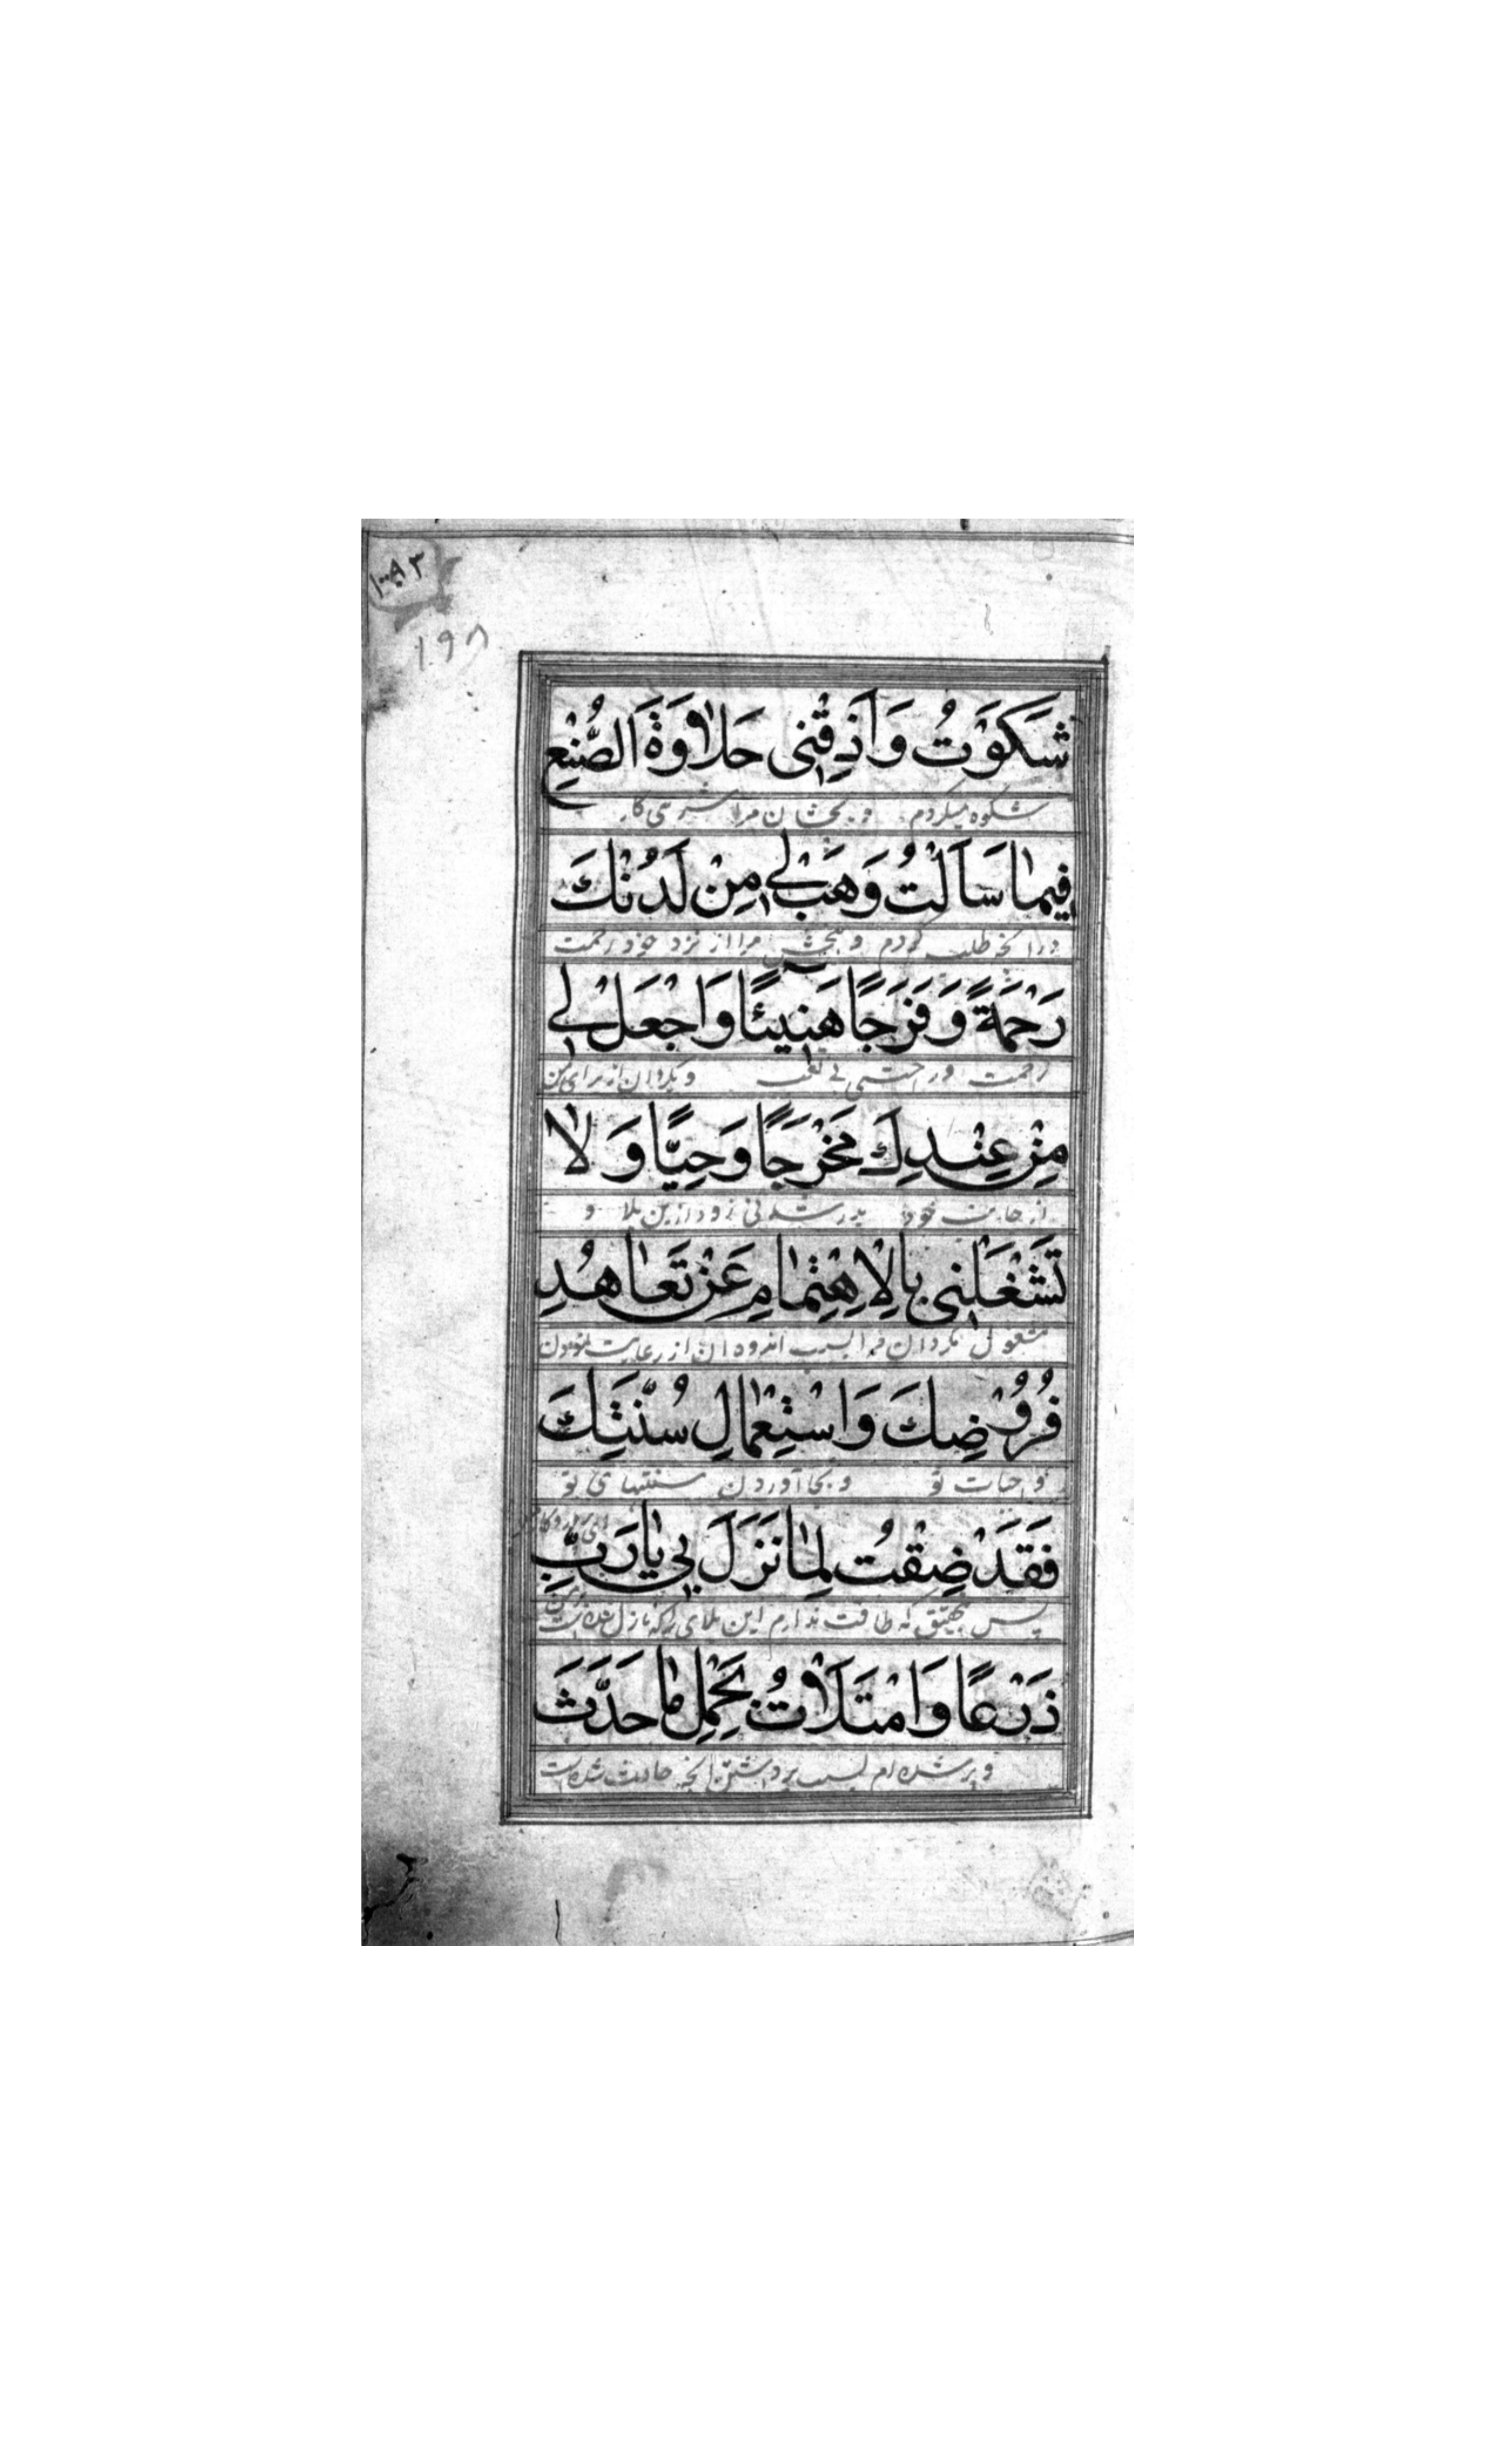 ۱۰۰۸۳
۱۹۸
شَكَوْتُ وَاَذِقْنِی حَلاٰوَةَ الصُّنْعِ
شکوه میکردم و بچشان مرا
فِیمٰا سَاَلْتُ وَهَبْ لِی مِنْ لَدُنْكَ
در آنچه طلب کردم و ببخش مرا از نزد خود رحمت
رَحْمَةً وَفَرَجًا هَنِیٓئًا وَاجْعَلْ لِی
رحمت و راحتی بی تعب و بگردان از برای من
مِنْ عِنْدِكَ مَخْرَجًا وَحِیًّا وَلاٰ
از جانب خود بدر شدنی زود ازین بلا و
تَشْغَلْنِی بِالْاِهْتِمٰامِ عَنْ تَعٰاهُدِ
مشغول مگردان مرا بسبب اندوه آن از رعایت نمودن
فُرُوْضِكَ وَاسْتِعْمٰالِ سُنَّتِكَ
واجبات تو و بجا آوردن سنتهای تو
فَقَدْ ضِقْتُ لِمٰا نَزَلَ بِی یٰا رَبِّ
ای پروردگار
پس بتحقیق که طاقت ندارم این بلای را که نازل شده است
بمن
ذَرْعًا وَامْتَلَاْتُ بِحَمْلِ مٰا حَدَثَ
و پر شده ام بسبب برداشتن آنچه حادث شده است